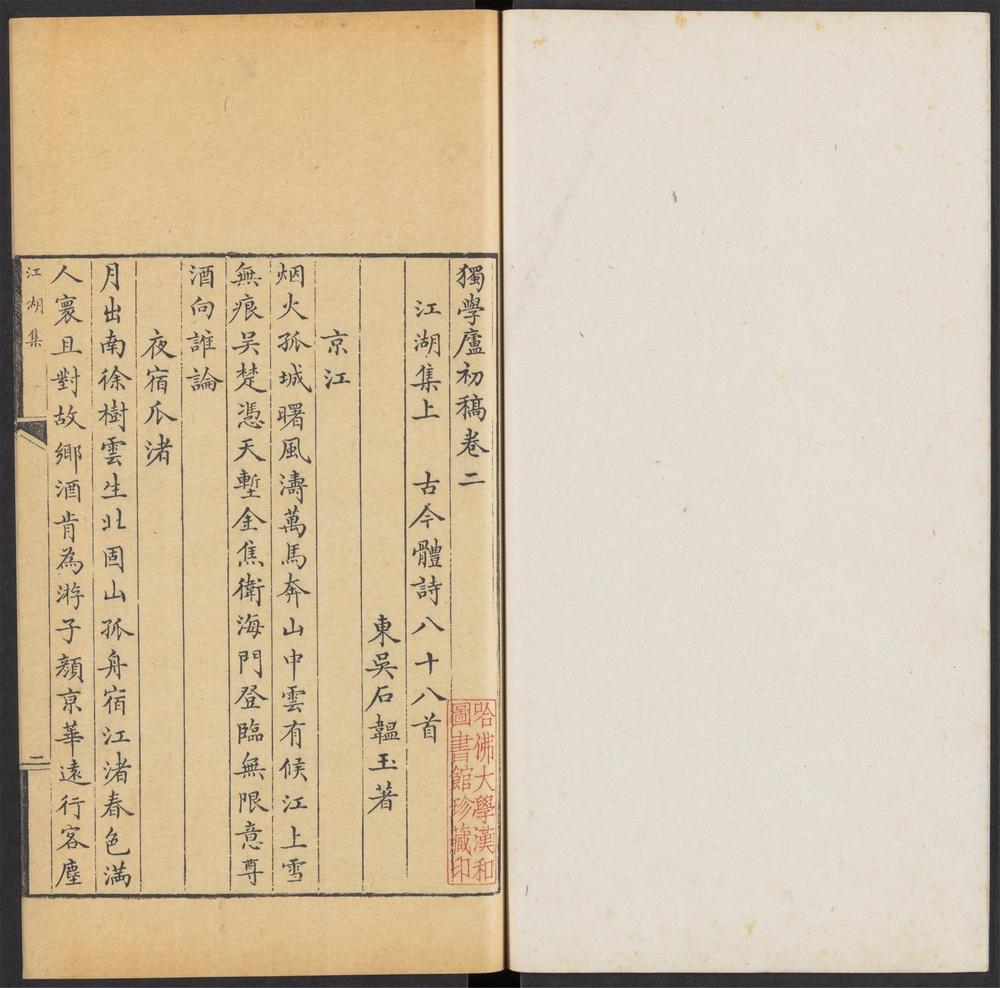 獨學廬初稿卷二
江湖集上　古今體詩八十八首
東吳石韞玉著
京江
烟火孤城曙風濤萬馬奔山中雲有候江上雪
無痕吳楚憑天塹金焦衛海門登臨無限意尊
酒向誰論
夜宿瓜渚
月出南徐樹雲生北固山孤舟宿江渚春色滿
人寰且對故鄉酒肯為游子顏京華遠行客塵
江湖集
二
哈佛大學漢和
圖書館珍藏印